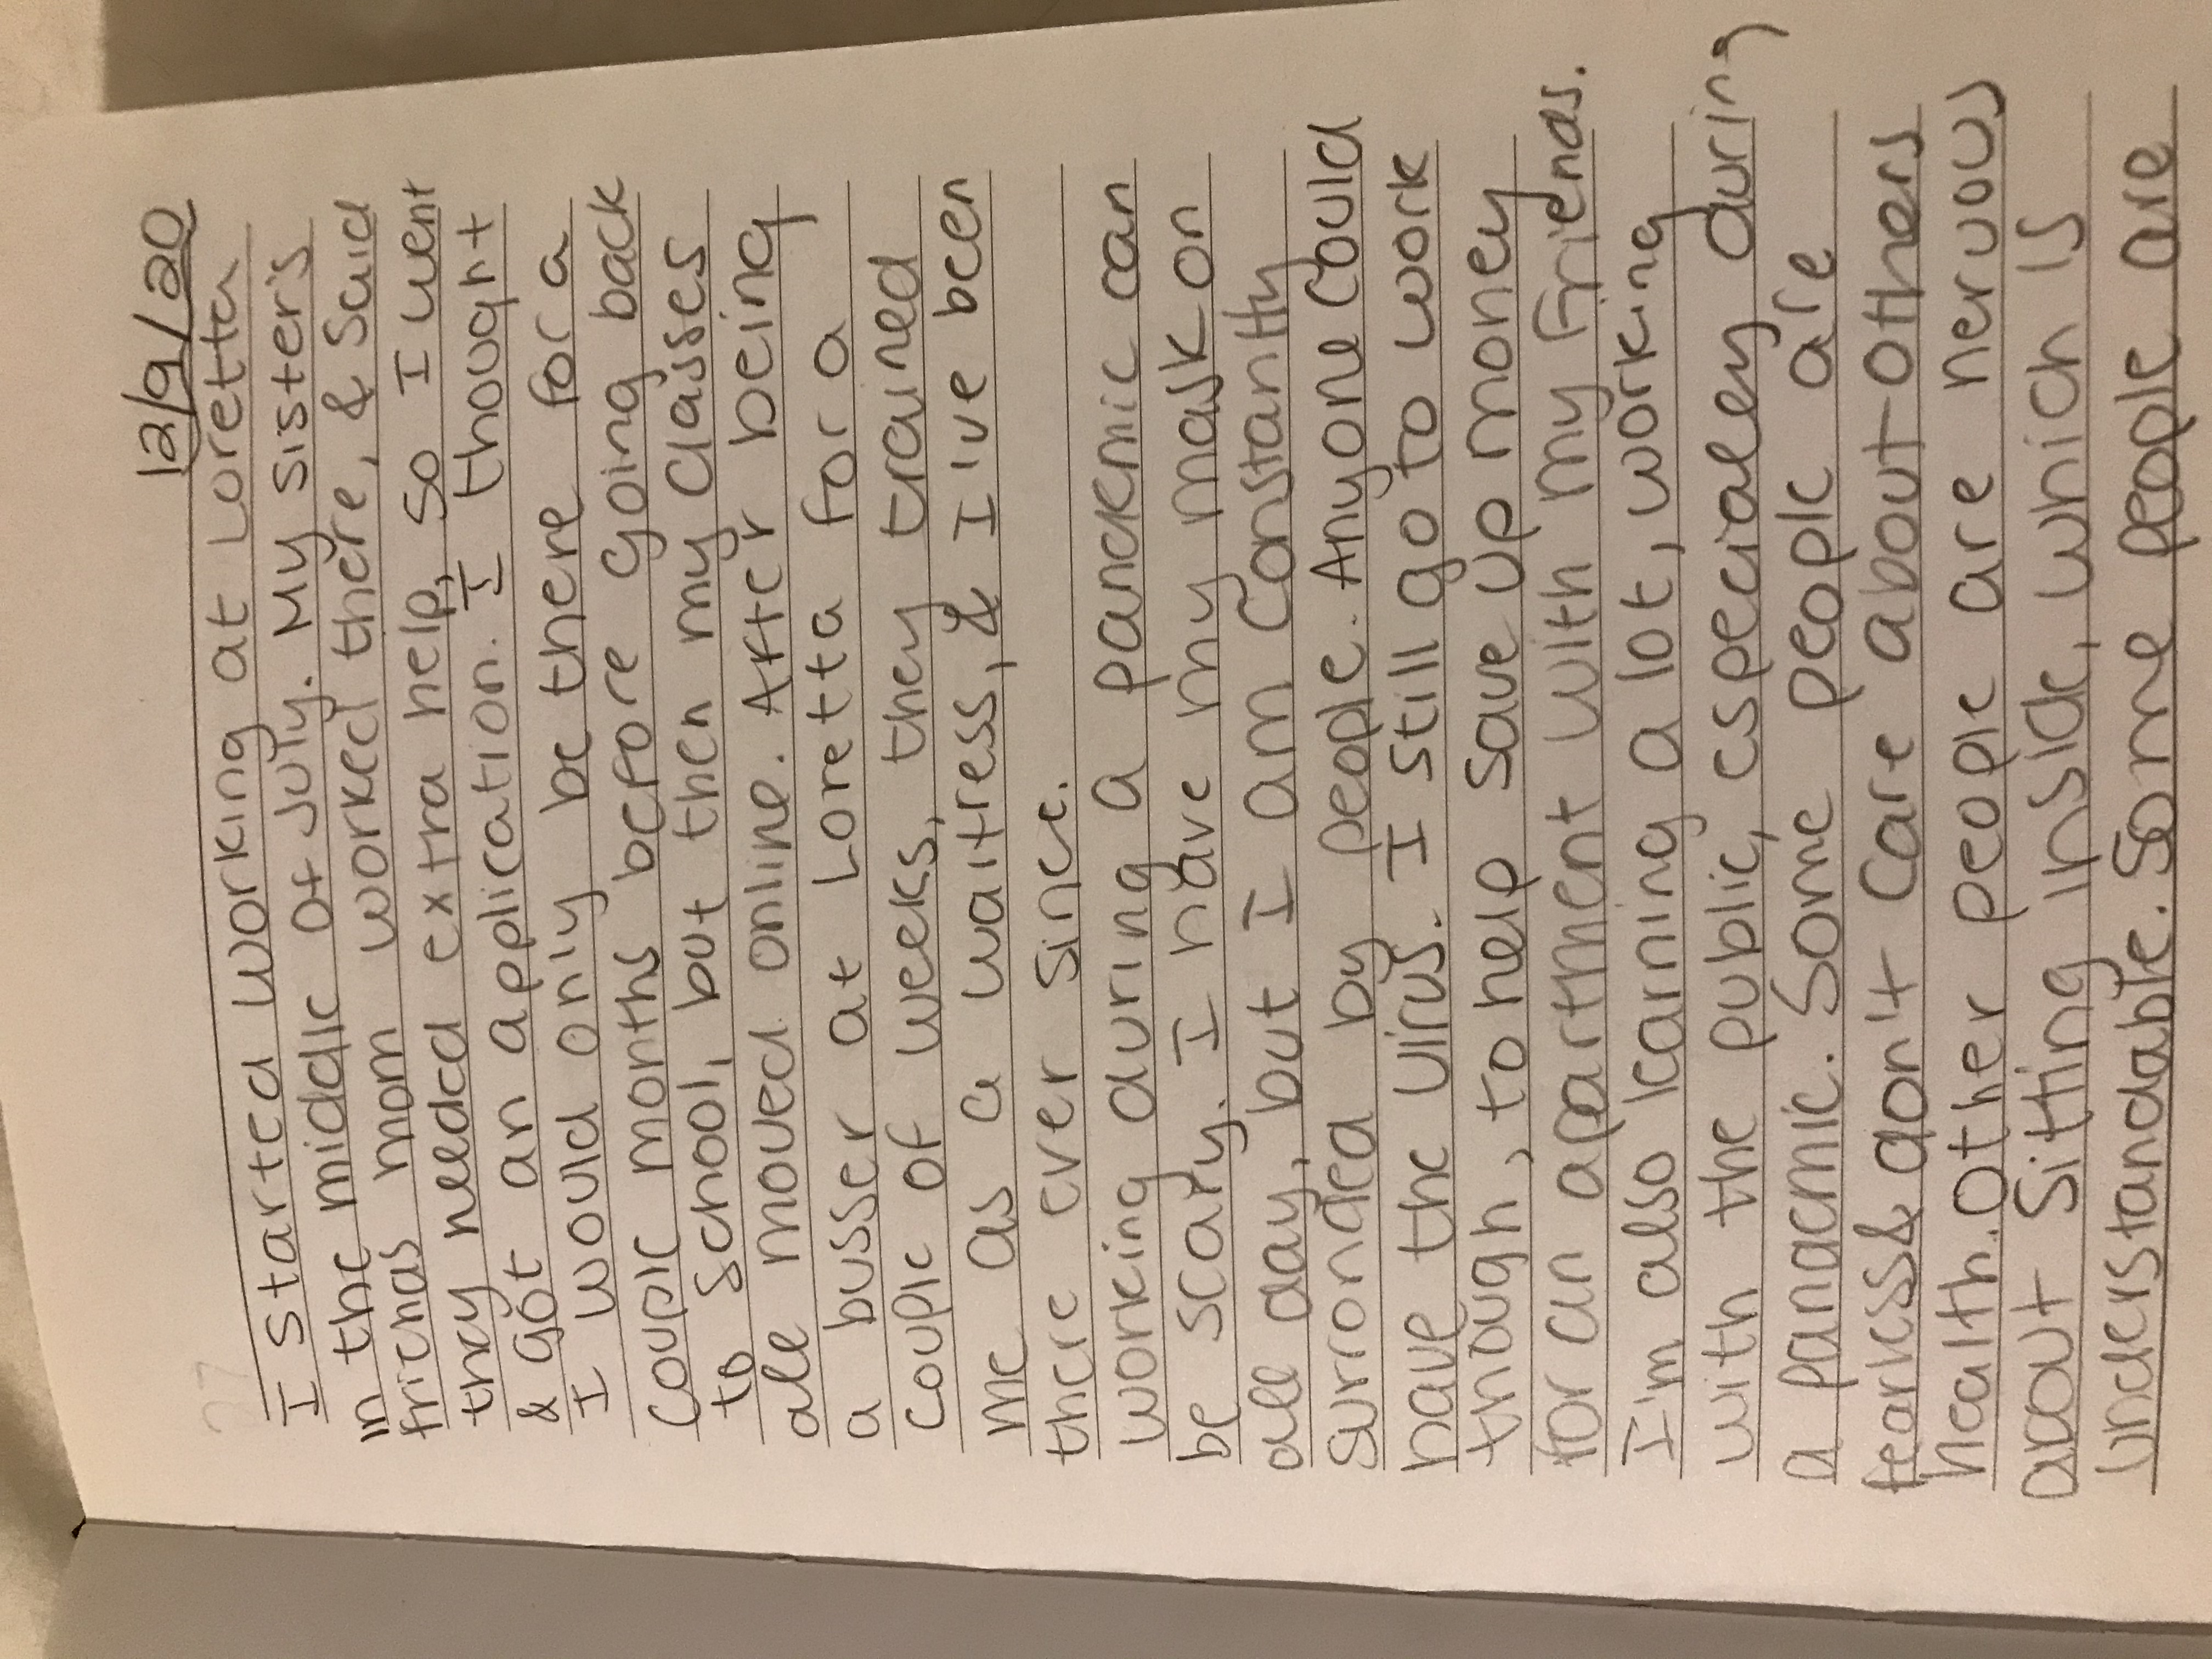 27
12/9/20
I started working at Loretta
in the middle of July. My sister's
friends mom worked there, & said
they needed extra help, so I went
& got an application. I thought
I would only be there for a
couple months before going back
to school, but then my classes
all moved online. After being
a busser at Loretta for a
couple of weeks, they trained
me as a waitress, & I've been
there ever since.
Working during a pandemic can
be scary. I have my mask on
all day, but I am constantly
surronded by people. Anyone could
have the virus. I still go to work
though, to help save up money
for an apartment with my friends.
I'm also learning a lot, working
with the public, especially during
a pandemic. Some people are
fearless & don't care about others
health. Other people are nervous
about sitting inside, which is
understandable. Some people are